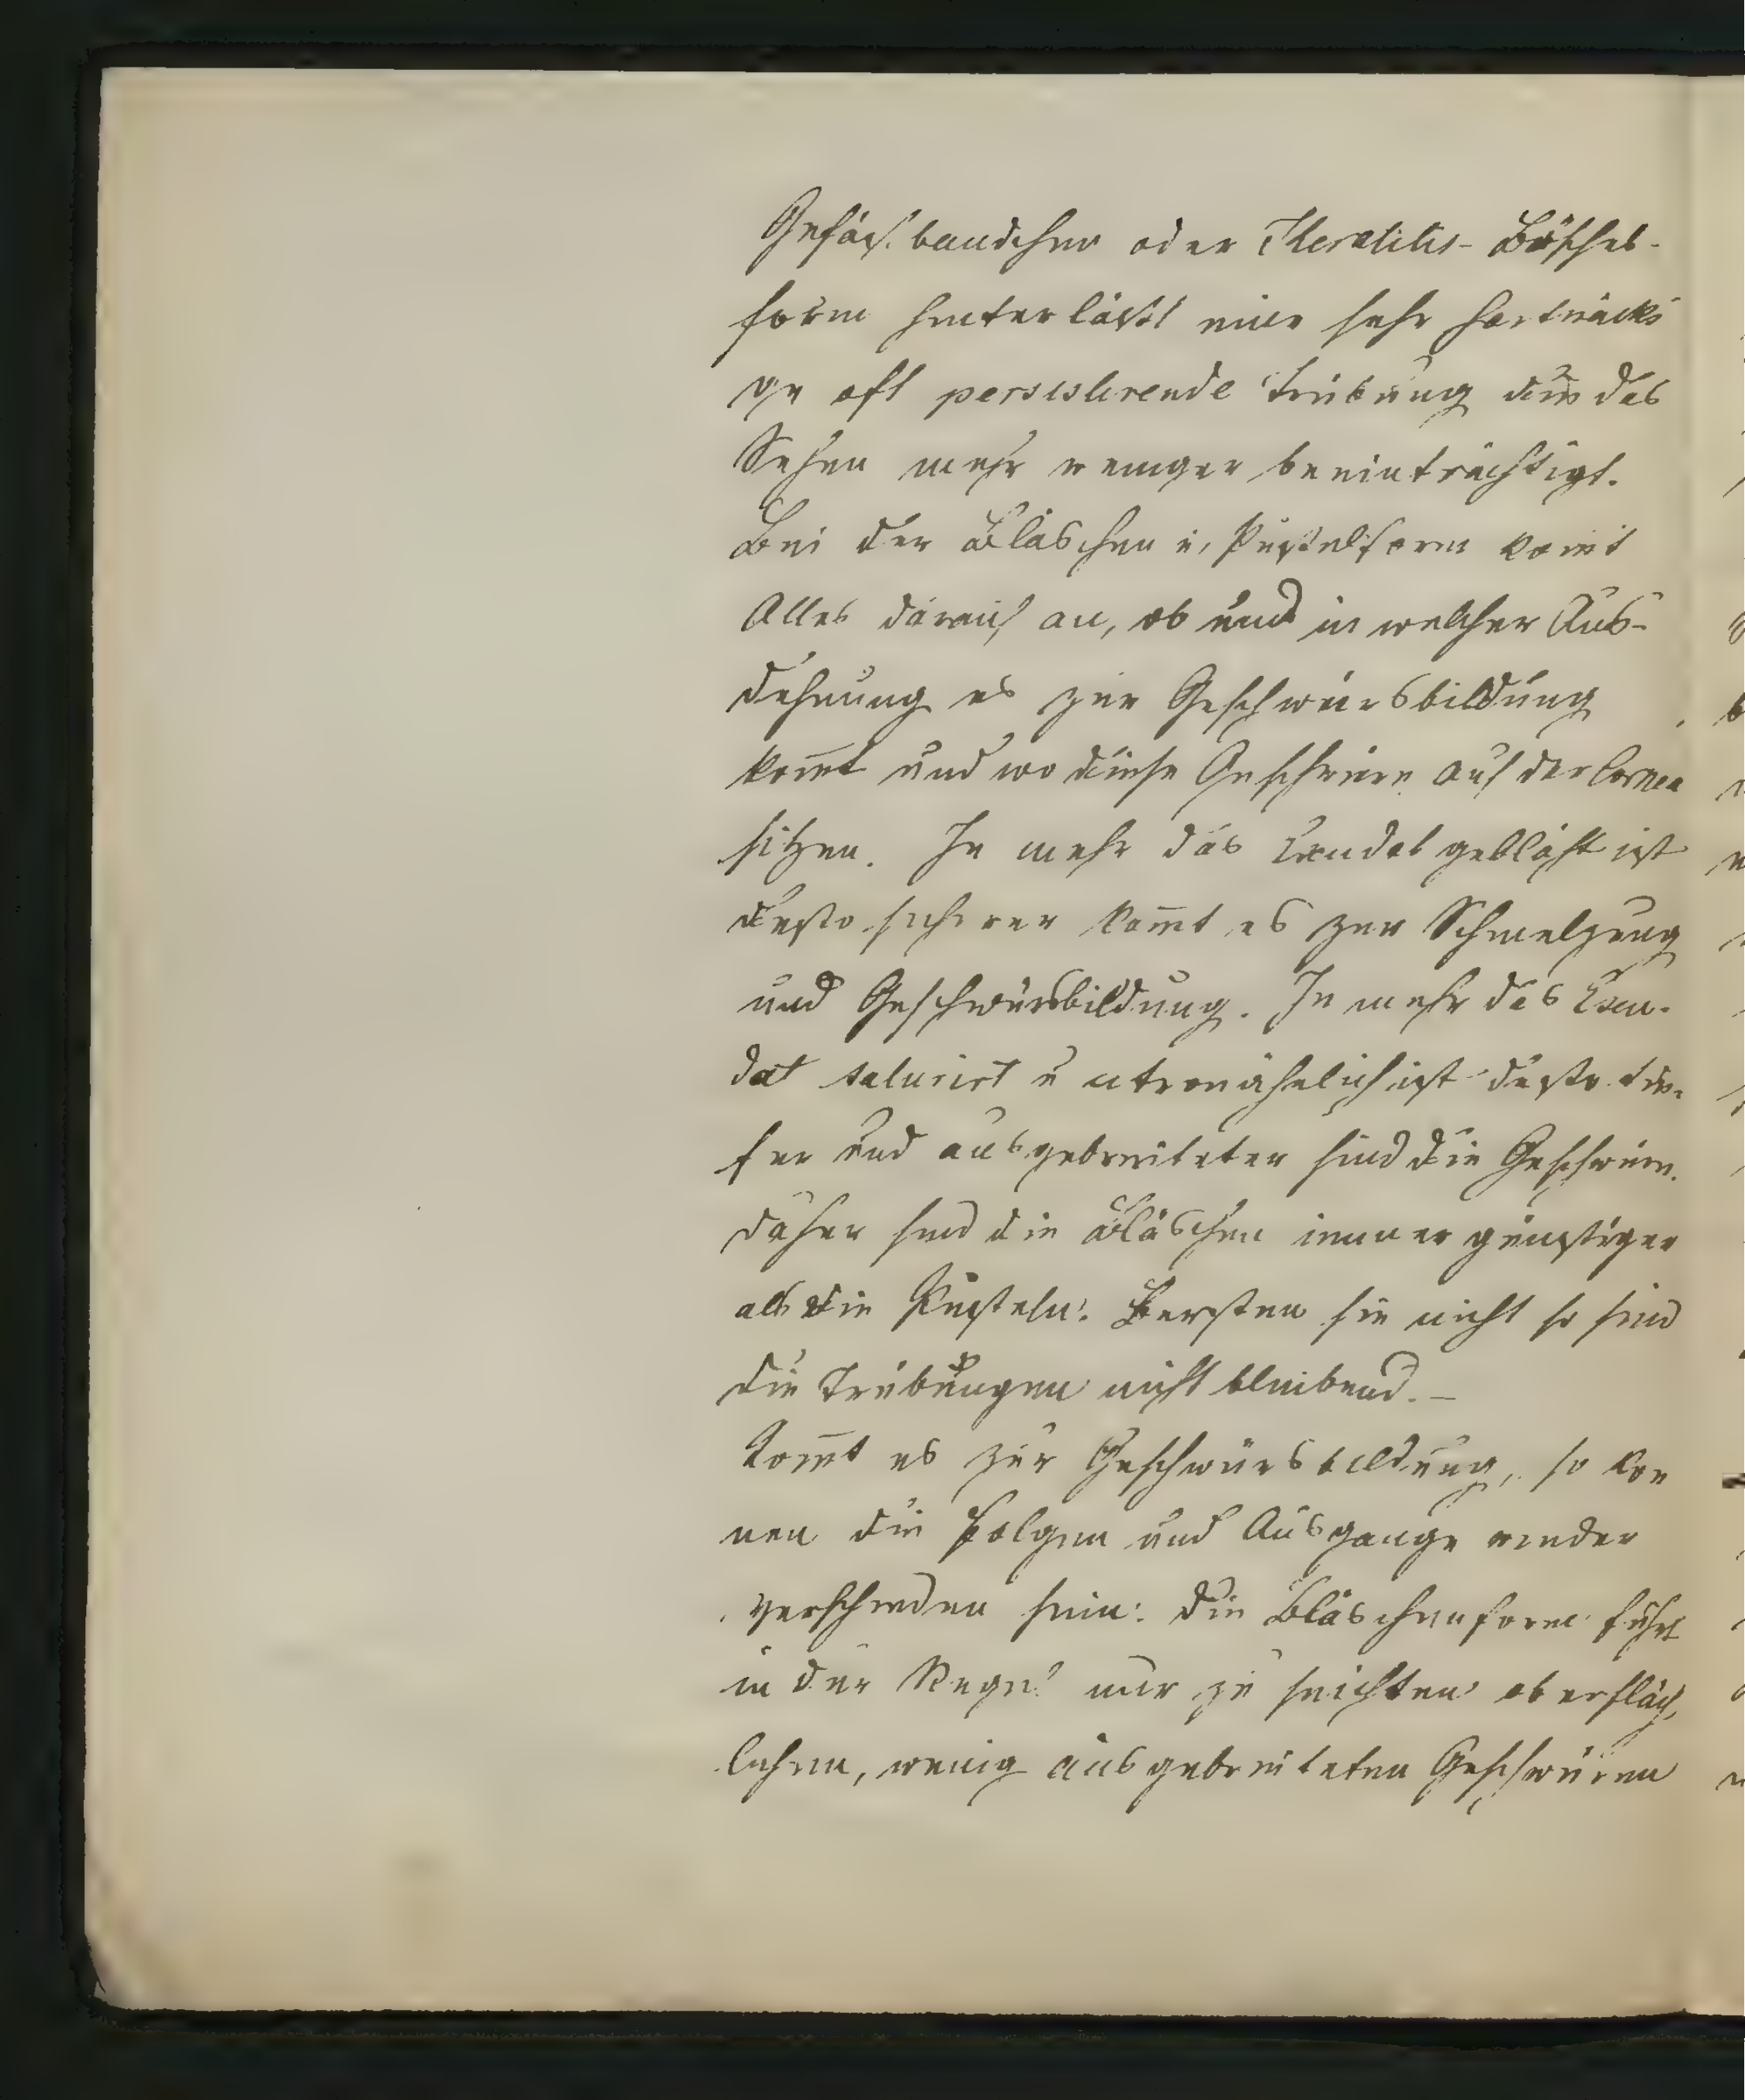 Gefässbandchen oder Keratitis-Büschel-
form hinterlässt eine sehr hartnäcki
ge oft persistirende Trübung die das
Sehen mehr weniger beeinträchtigt.
Bei der Bläschen u. Pustelform komt
Alles darauf an, ob und in welcher Aus-
dehnung es zur Geschwürsbildung
komt und wo diese Geschwüre auf der Cornea
sitzen. Je mehr das Exudat gebläht ist
desto sicherer komt es zur Schmelzung
und Geschwürsbildung. Je mehr das Exu-
dat saturirt u eiterähnlich ist desto tie-
fer und ausgebreiteter sind die Geschwüre.
daher sind die Bläschen immer günstiger
als die Pusteln. Bersten sie nicht so sind
die Trübungen nicht bleibend. –
Komt es zur Geschwürsbildung, so kön
nen die Folgen und Ausgange wieder
verschieden sein: die Bläschenform führt
in der Regel nur zu seichten oberfläch
lichen, wenig ausgebreiteten Geschwüren